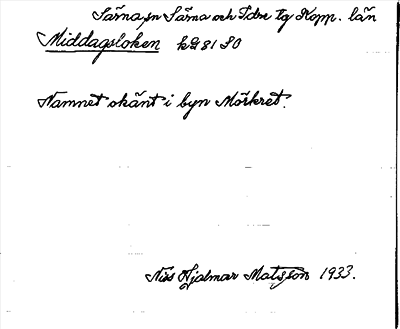 Särna sn Särna och Idre tg Kopp. län
Middagsloken kd 81 SO
Namnet okänt i byn Mörkret.
Nils Hjalmar Matsson 1933.